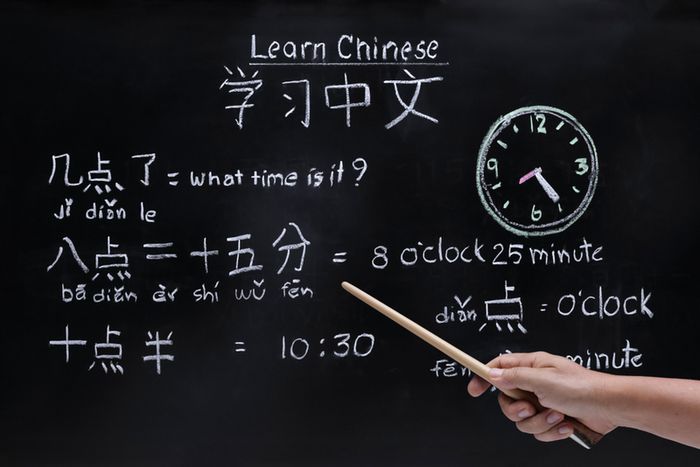 Learn Chinese
学习中文
几点了 = what time is it?
jǐ diǎn le
八点二十五分 = 8 o'clock 25 minute
bā diǎn èr shí wǔ fēn
diǎn 点 = o'clock
十点半 = 10:30
fēn minute
12
3
6
9